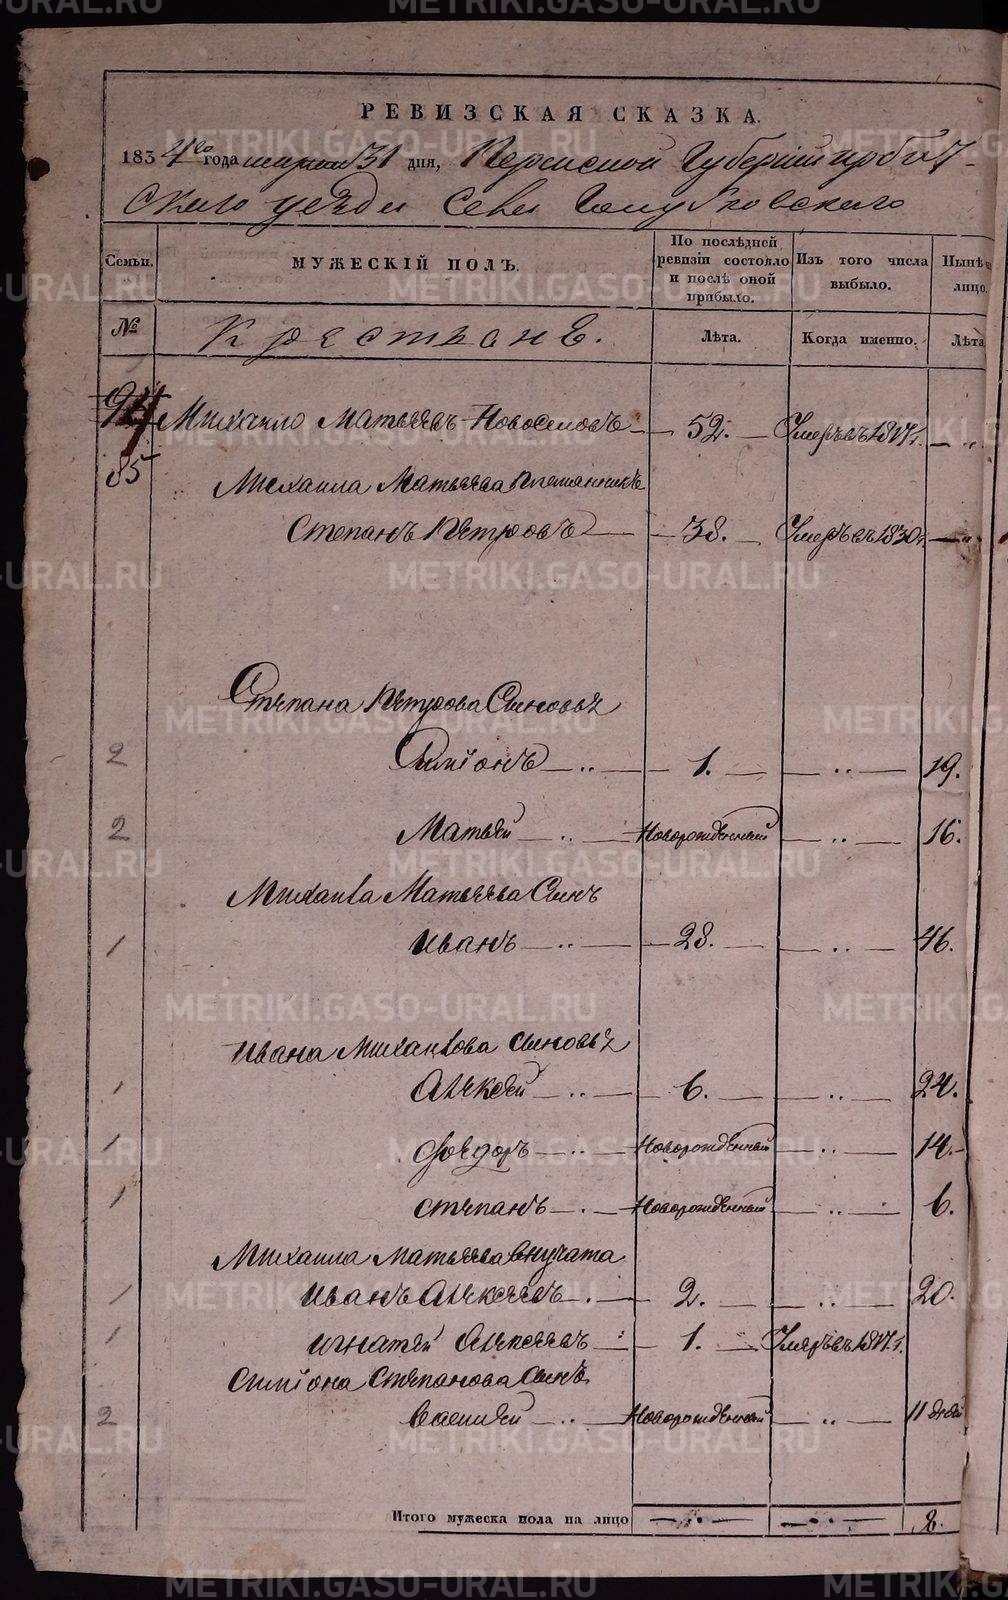 METRIKI.GASO-URAL.RU
РЕВИЗСКАЯ СКАЗКА.
1834го года марта 31 дня, Пермской Губернии Ирбит-
скаго уезда села
Семьи.
МУЖЕСКІЙ ПОЛЪ.
По послѣдней ревизіи состояло и послѣ оной прибыло.
Изъ того числа выбыло.
Нынѣ лицо.
№
Крестьяне.
Лѣта.
Когда именно.
Лѣта
94 Михайло Матвѣевъ Новоселовъ 52. Умеръ въ 1817г. — „
85
Михаила Матвѣева племянникъ
Степанъ Петровъ — 38. — Умеръ въ 1830г. — „
Степана Петрова Сыновья
2 Симіонъ — „ — 1. — „ — 19.
2 Матвѣй — „ Новорожденный — „ — 16.
Михаила Матвѣева Сынъ
1 Иванъ — „ — 28. — „ — 46.
Ивана Михайлова сыновья
1 Алексѣй — „ — 6. — „ — 24.
1 Фёдоръ — „ — Новорожденный — „ — 14.
1 Степанъ — „ — Новорожденный — „ — 6.
Михаила Матвѣева внучата
1 Иванъ Алексѣевъ — „ — 2. — „ — 20.
1 Игнатей Алексѣевъ „ — 1. — Умеръ въ 1817г.
Симіона Степанова Сынъ
2 Василей — „ — Новорожденный — „ — 11 дней
Итого мужеска пола на лицо — „ — — „ — 8.